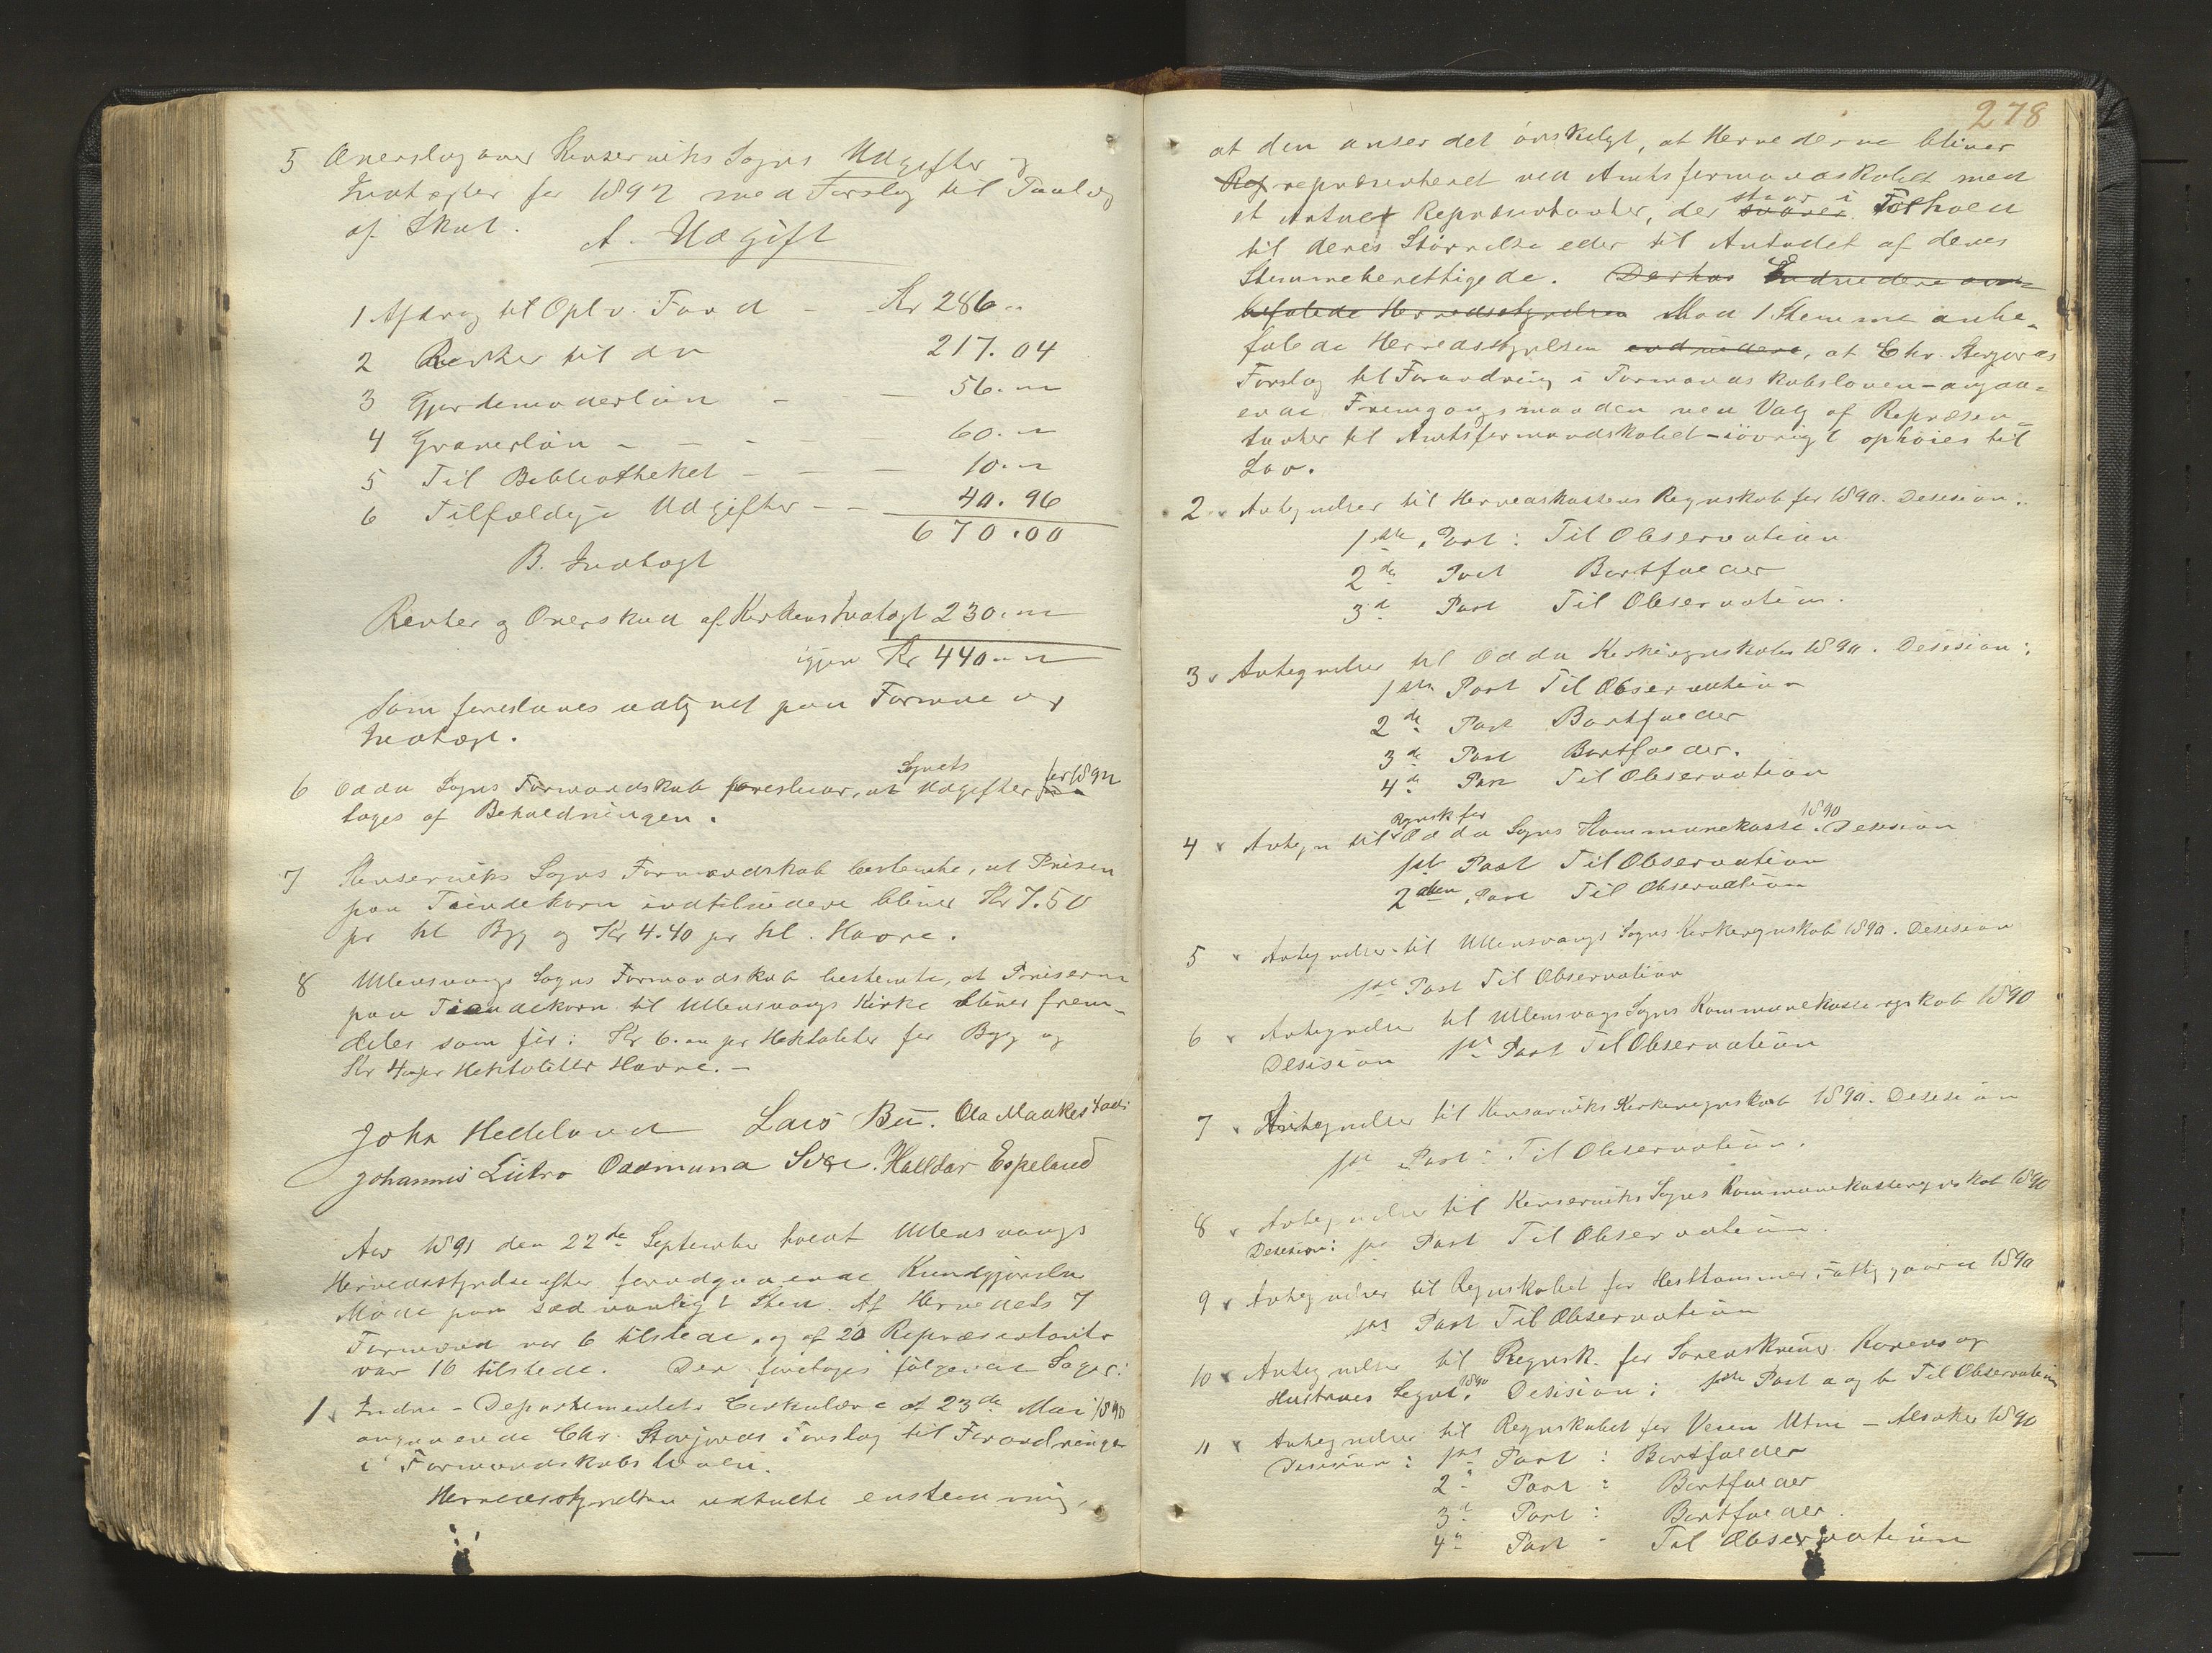 5 Overslag over Kinserviks Sogns Udgifter og
Indtægter for 1892 med Forslag til Paalæg
af Skat.
A. Udgift
1 Afdrag til Oplv. Fond - Kr 286 "
2 Renter til do 217.04
3 Gjordemoderløn - - 56."
4 Graverløn - - - 60."
5 Til Bibliotheket - - - 10."
6 Tilfældige Udgifter - - 40.96
670.00
B. Indtægt
Renter og Overskud af Kirkens Indtægt 230."
igjen Kr 440."
Som foreslaaes udlignet paa Formue og
Indtægt.
6 Odda Sogns Formandskab foreslaar, at Sognets Udgifter for 1892
tages af Beholdningen.
7 Kinserviks Sogns Formandskab bestemte, at Prisen
paa Tiendekorn indtilvidere bliver Kr 7.50
pr hl Byg og Kr 4.40 pr hl. Havre.
8 Ullensvangs Sogns Formandskab bestemte, at Priserne
paa Tiendekorn til Ullensvangs Kirke bliver frem-
deles som før: Kr 6.00 pr Hektoliter for Byg og
Kr 4 " pr Hektoliter Havre. -
John Hedeland Lars Bu. Ola Maakestad
Johannis Lutro Oddmund Sexe. Halldor Espeland
Aar 1891 den 22de September holdt Ullensvangs
Herredsstyrelse efter forudgaaende Kundgjørelse
Møde paa sædvanligt Sted. Af Herredets 7
Formænd var 6 tilstede, og af 20 Repræsentanter
var 16 tilstede. Der foretoges følgende Sager:
1 Indre-Departementets Cirkulære af 23de Mai 1890
angaaende Chr. Storjords Forslag til Forandringer
i Formandskabsloven.
Herredsstyrelsen udtalte enstemmig,
278
at den anser det ønskeligt, at Herrederne bliver
Rep repræsenteret ved Amtsformandskabet med
et Antal Repræsentanter, der svarer staar i Forhold
til deres Størrelse eller til Antallet af deres
Stemmeberettigede. Derhos Endvidere an-
befalede Herredsstyrelsen Mod 1 Stemme anbe-
falede Herredsstyrelsen endvidere, at Chr. Storjords
Forslag til Forandring i Formandskabsloven - angaa-
ende Fremgangsmaaden ved Valg af Repræsen-
tanter til Amtsformandskabet - iøvrigt ophøies til
Lov.
2 Antegnelser til Herredskassens Regnskab for 1890. Desision:
1ste Post: Til Observation
2de Post Bortfalder
3de Post Til Observation.
3 Antegnelser til Odda Kirkeregnskab 1890. Desision:
1ste Post Til Observation
2de Post Bortfalder
3de Post Bortfalder.
4de Post Til Observation
4 Antegn til Regnsk for Odda Sogns Kommunekasse 1890. Desision
1ste Post Til Observation
2den Post Til Observation
5 Antegnelser til Ullensvangs Sogns Kirkeregnskab 1890. Desision
1ste Post Til Observation
6 Antegnelser til Ullensvangs Sogns Kommunekasseregskab 1890
Desision 1ste Post Til Observation
7 Antegnelser til Kinserviks Kirkeregnskab 1890. Desision
1ste Post: Til Observation.
8 Antegnelser til Kinserviks Sogns Kommunekasseregnskab 1890
Desision: 1ste Post Til Observation.
9 Antegnelser til Regnskabet for Hesthammer 1890
1ste Post Til Observation
10 Antegnelser til Regnsk. for Sorenskriver Korens og
Hustrues Legat 1890. Desision: 1ste Post a og b Til Observation
11 Antegnelser til Regnskabet for Veien Utne - Alsaker 1890
Desision: 1ste Post: Bortfalder
2" Post: Bortfalder
3d Post: Bortfalder.
4" Post - Til Observation